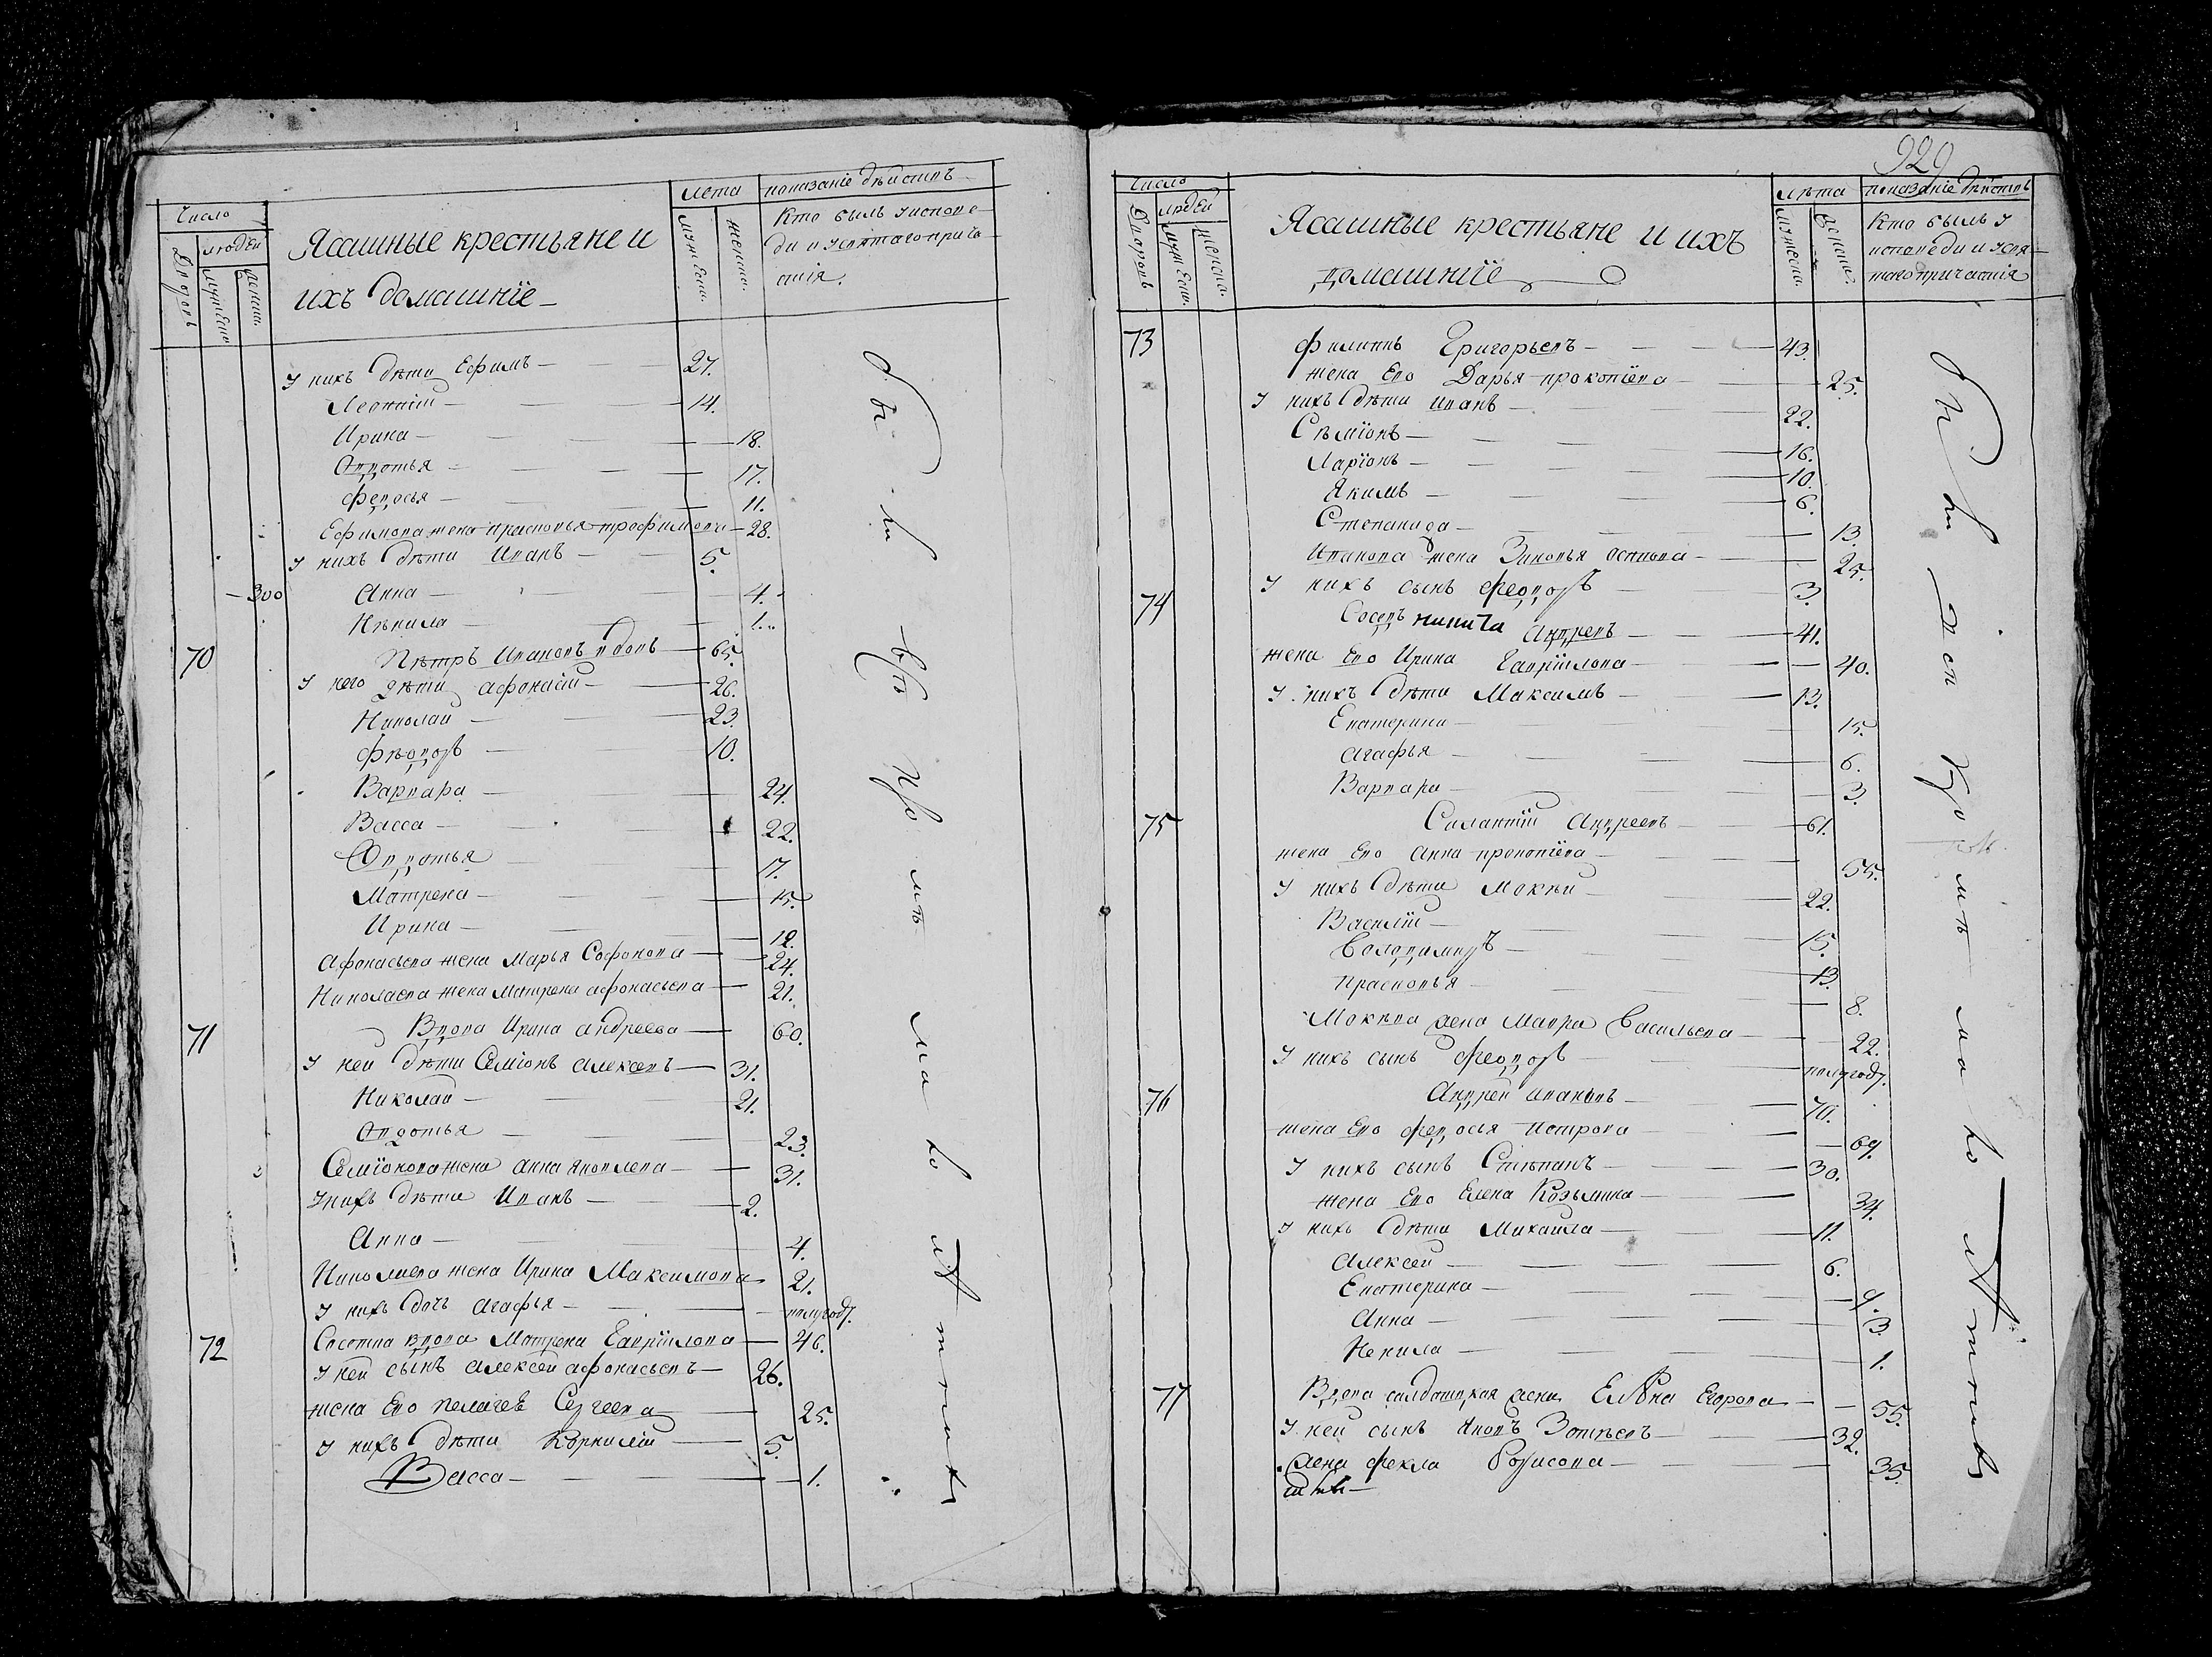 Число
людей
Дворовъ
мужеска
женска
Ясашные крестьяне и
ихъ домашнїе
лета
мужеска
женска
показанїе дѣйствъ
Кто былъ уиспове-
ди и усвятагоприча-
стїя.
У нихъ дѣти Ефимъ — 27.
Леонтїй — 14.
Ирина — 18.
Овдотья — 17.
Федосья — 11.
Ефимова жена Прасковья Трофимова — 28.
У нихъ дѣти Иванъ — 5.
Анна — 4.
Ненила — 1.
70 Пѣтръ Ивановъ вдовъ — 65.
У него дѣти Афонасїй — 26.
Николай — 23.
Фѣодоръ — 10.
Варвара — 24.
Васса — 22.
Овдотья — 17.
Матрена — 15.
Ирина — 12.
Афонасьева жена Марья Софонова — 24.
Николаева жена Матрена Афонасьева — 21.
71 Вдова Ирина Андреева — 60.
У ней дѣти Семїонъ Алексевъ — 31.
Николай — 21.
Овдотья — 23.
Семїонова жена Анна Яковлева — 31.
Унихъ дѣти Иванъ — 2.
Анна — 4.
Николаева жена Ирина Максимова 21.
У нихъ дочь Агафья — полугоду.
72 вдова Матрена Гаврїилова — 46.
У ней сынъ Алексей Афонасьевъ — 26.
жена Ево Сергеева — 25.
У нихъ дѣти Корнилїй — 5.
Васса — 1.
929
Число
людей
Дворовъ
мужеска
женска
Ясашные крестьяне и ихъ
домашнїе
лѣта
мужеска
женска
показанїе дѣйствъ
Кто былъ у
исповеди и усвя-
тагопричастїя
73 Филипъ Григорьевъ — 43.
жена Ево Дарья Прокопїева — 25.
У нихъ дѣти Иванъ — 22.
Сѣмїонъ — 16.
Ларїонъ — 10.
Якимъ — 6.
Степанида — 13.
Иванова жена Зиновья Осипова — 25.
У нихъ сынъ Феодоръ — 3.
74 никита Андревъ — 41.
жена Ево Ирина Гаврїилова — 40.
У нихъ дѣти Максимъ — 13.
Екатерина — 15.
Агафья — 6.
Варвара — 3.
75 Силантїй Андреевъ — 61.
жена Ево Анна Прокопїева — 55.
У нихъ дѣти Мокѣй — 22.
Василїй — 15.
Володимиръ — 13.
Прасковья — 8.
Мокѣва жена Мавра Васильева — 22.
У нихъ сынъ Феодоръ — полугоду.
76 Андрей Ивановъ — 70.
жена Ево Федосья Петрова — 69.
У нихъ сынъ Стѣпанъ — 30.
жена Ево Елена Козьмина — 34.
У нихъ дѣти Михаила — 11.
Алексей — 6.
Екатерина — 9.
Анна — 3.
Ненила — 1.
77 Вдова салдатская жена Елѣна Егорова — 55.
У ней сынъ Яковъ Зотѣевъ — 32.
жена Фекла Борисова — 35.